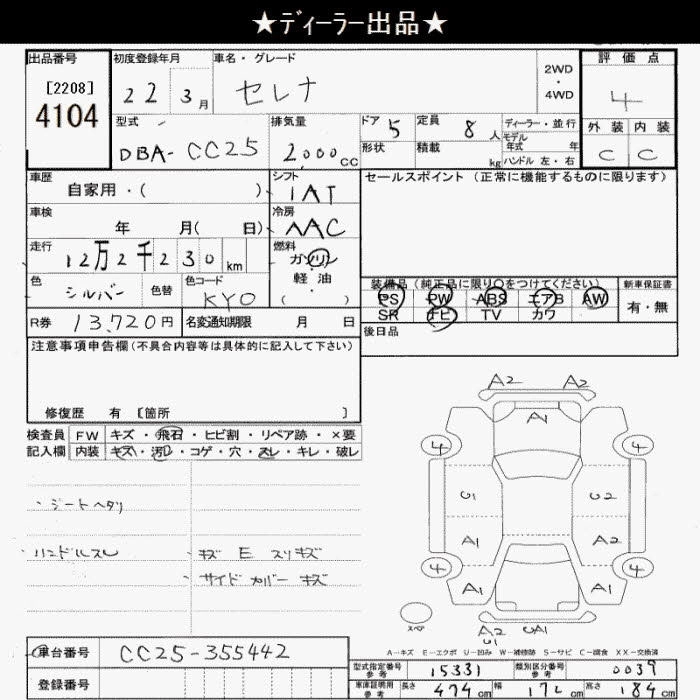 ★ディーラー出品★
出品番号
[2208]
4104
初度登録年月
22 3月
車名・グレード
セレナ
2WD
・
4WD
評価点
4
外装 内装
C C
型式
DBA-CC25
排気量
2000cc
ドア 5
形状
定員 8人
積載 kg
ディーラー・並行
モデル
年式 年
ハンドル 左・右
車歴
自家用・( )
シフト
IAT
セールスポイント(正常に機能するものに限ります)
車検
年 月( 日)
冷房
AAC
走行
12万2千230km
燃料
ガソリン
軽・油
( ・ )
色
シルバー
色替
色コード
KY0
装備品(純正品に限り○をつけてください)
PS PW ABS エアB AW
SR ナビ TV カワ
新車保証書
有・無
R券 13,720円
名変通知期限 月 日
後日品
注意事項申告欄(不具合内容等は具体的に記入して下さい)
修復歴 有 [箇所 ]
検査員
記入欄
FW キズ・飛石・ヒビ割・リペア跡・×要
内装 キズ・汚れ・コゲ・穴・スレ・キレ・破レ
・シートヘタリ
・ハンドルスレ
・キズ E スリキズ
サイドカバー キズ
A2 A2
A1
4 4
U1 U2
A1 A2
4 4
A1 A1
スペア
A2 UA1
U1
A-キズ E-エクボ U-凹み W-補修跡 S-サビ C-腐食 XX-交換済
車台番号
CC25-355442
登録番号
型式指定番号
参考
15331
類別区分番号
参考
0039
車庫証明用
参考
長さ 474cm 幅 172cm 高さ 184cm